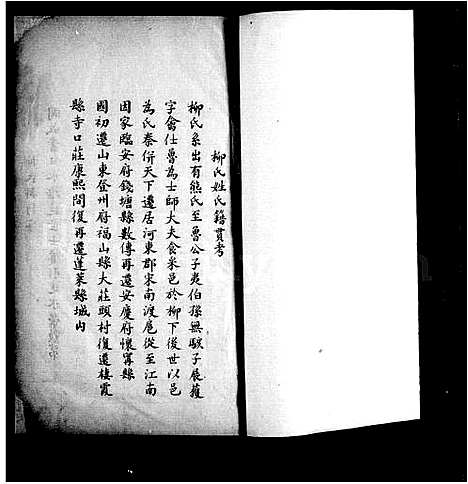 柳氏姓氏籍貫考
柳氏系出有熊氏至魯公子夷伯孫無駭子展獲
字禽仕魯為士師大夫食采邑於柳下後世以邑
為氏秦併天下遷居河東郡宋南渡扈從至江南
因家臨安府錢塘縣數傳再遷安慶府懷寧縣
國初遷山東登州府福山縣大莊頭村復遷棲霞
縣寺口莊康熙間復再遷蓬萊縣城內